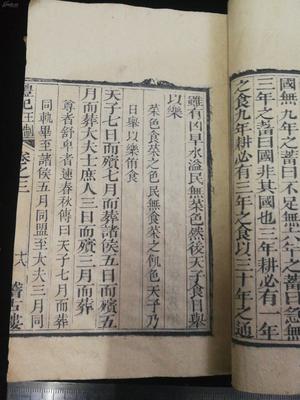 國無九年之蓄曰不足無六年之蓄曰急無
三年之蓄曰國非其國也三年耕必有一年
之食九年耕必有三年之食以三十年之通
雖有凶旱水溢民無菜色然後天子食日舉
以樂
菜色食菜之色民無食菜之飢色天子乃
日舉以樂侑食
天子七日而殯七月而葬諸侯五日而殯五
月而葬大夫士庶人三日而殯三月而葬
尊者舒卑者速春秋傳曰天子七月而葬
同軌畢至諸侯五月同盟至大夫三月同
禮記王制
卷之三
十八
稽古樓